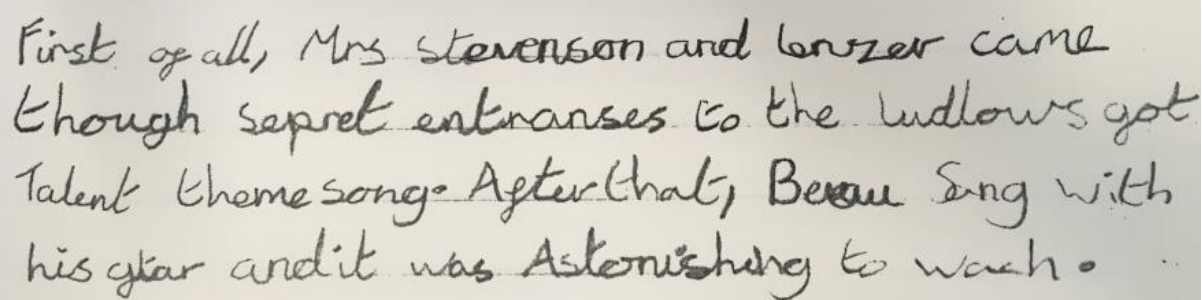 First of all, Mrs stevenson and came
though sepret entranses to the ludlows got
Talent theme song. After that, Beau Sang with
his gtar and it was Astonishing to wach.